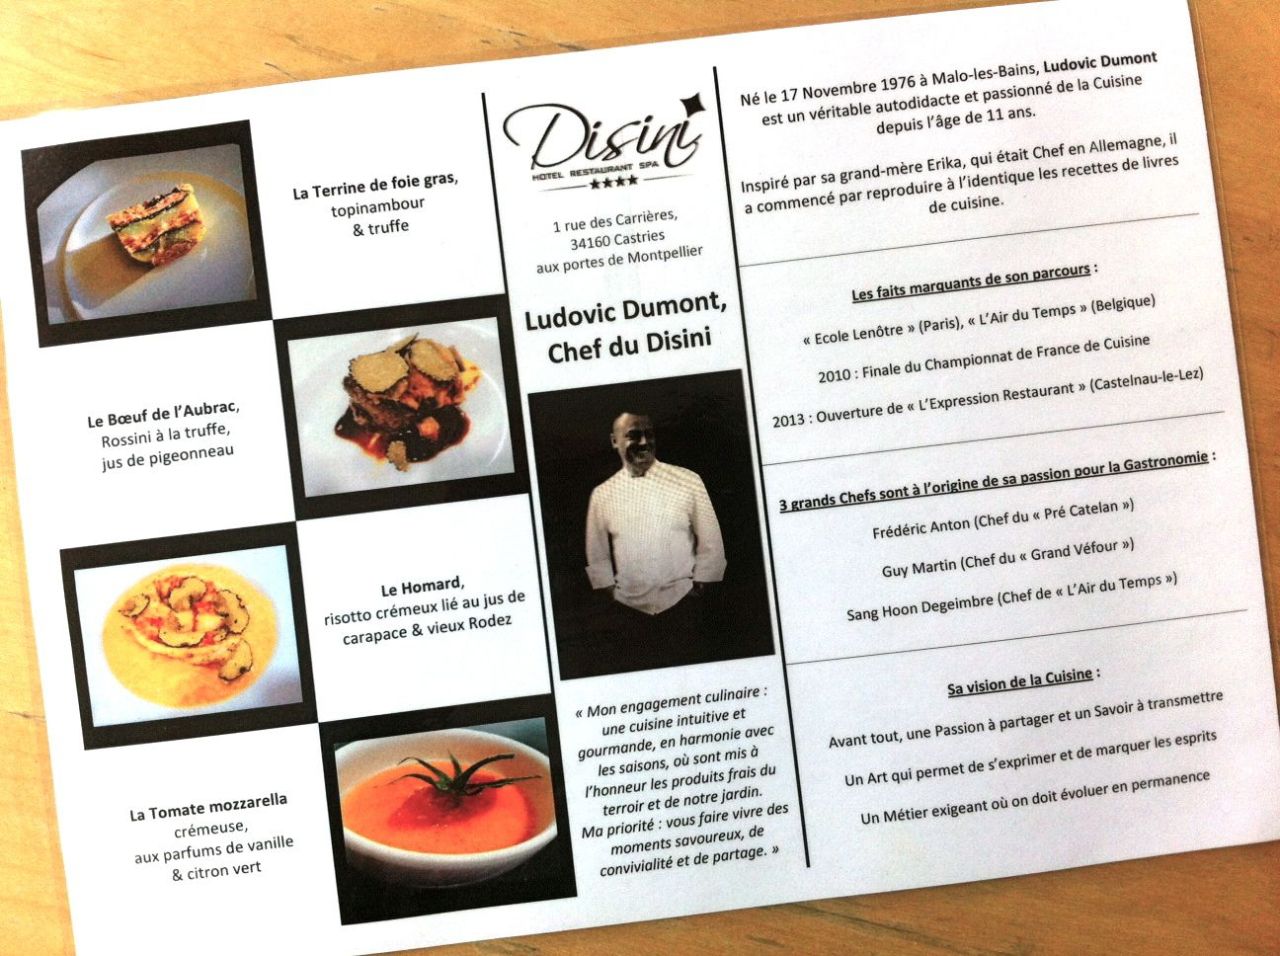 La Terrine de foie gras,
topinambour
& truffe
Le Bœuf de l’Aubrac,
Rossini à la truffe,
jus de pigeonneau
Le Homard,
risotto crémeux lié au jus de
carapace & vieux Rodez
La Tomate mozzarella
crémeuse,
aux parfums de vanille
& citron vert
Disini
HOTEL RESTAURANT SPA
1 rue des Carrières,
34160 Castries
aux portes de Montpellier
Ludovic Dumont,
Chef du Disini
« Mon engagement culinaire :
une cuisine intuitive et
gourmande, en harmonie avec
les saisons, où sont mis à
l’honneur les produits frais du
terroir et de notre jardin.
Ma priorité : vous faire vivre des
moments savoureux, de
convivialité et de partage. »
Né le 17 Novembre 1976 à Malo-les-Bains, Ludovic Dumont
est un véritable autodidacte et passionné de la Cuisine
depuis l’âge de 11 ans.
Inspiré par sa grand-mère Erika, qui était Chef en Allemagne, il
a commencé par reproduire à l’identique les recettes de livres
de cuisine.
Les faits marquants de son parcours :
« Ecole Lenôtre » (Paris), « L’Air du Temps » (Belgique)
2010 : Finale du Championnat de France de Cuisine
2013 : Ouverture de « L’Expression Restaurant » (Castelnau-le-Lez)
3 grands Chefs sont à l’origine de sa passion pour la Gastronomie :
Frédéric Anton (Chef du « Pré Catelan »)
Guy Martin (Chef du « Grand Véfour »)
Sang Hoon Degeimbre (Chef de « L’Air du Temps »)
Sa vision de la Cuisine :
Avant tout, une Passion à partager et un Savoir à transmettre
Un Art qui permet de s’exprimer et de marquer les esprits
Un Métier exigeant où on doit évoluer en permanence